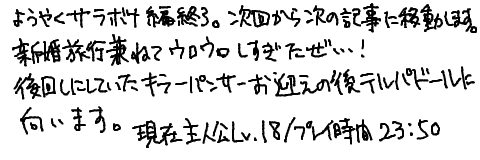 ようやくサラボナ編終了。次回から次の記事に移動します。
新婚旅行兼ねてウロウロしすぎたぜ…！
後回しにしていたキラーパンサーお迎えの後テルパドールに
向います。現在主人公Lv.18/プレイ時間 23:50